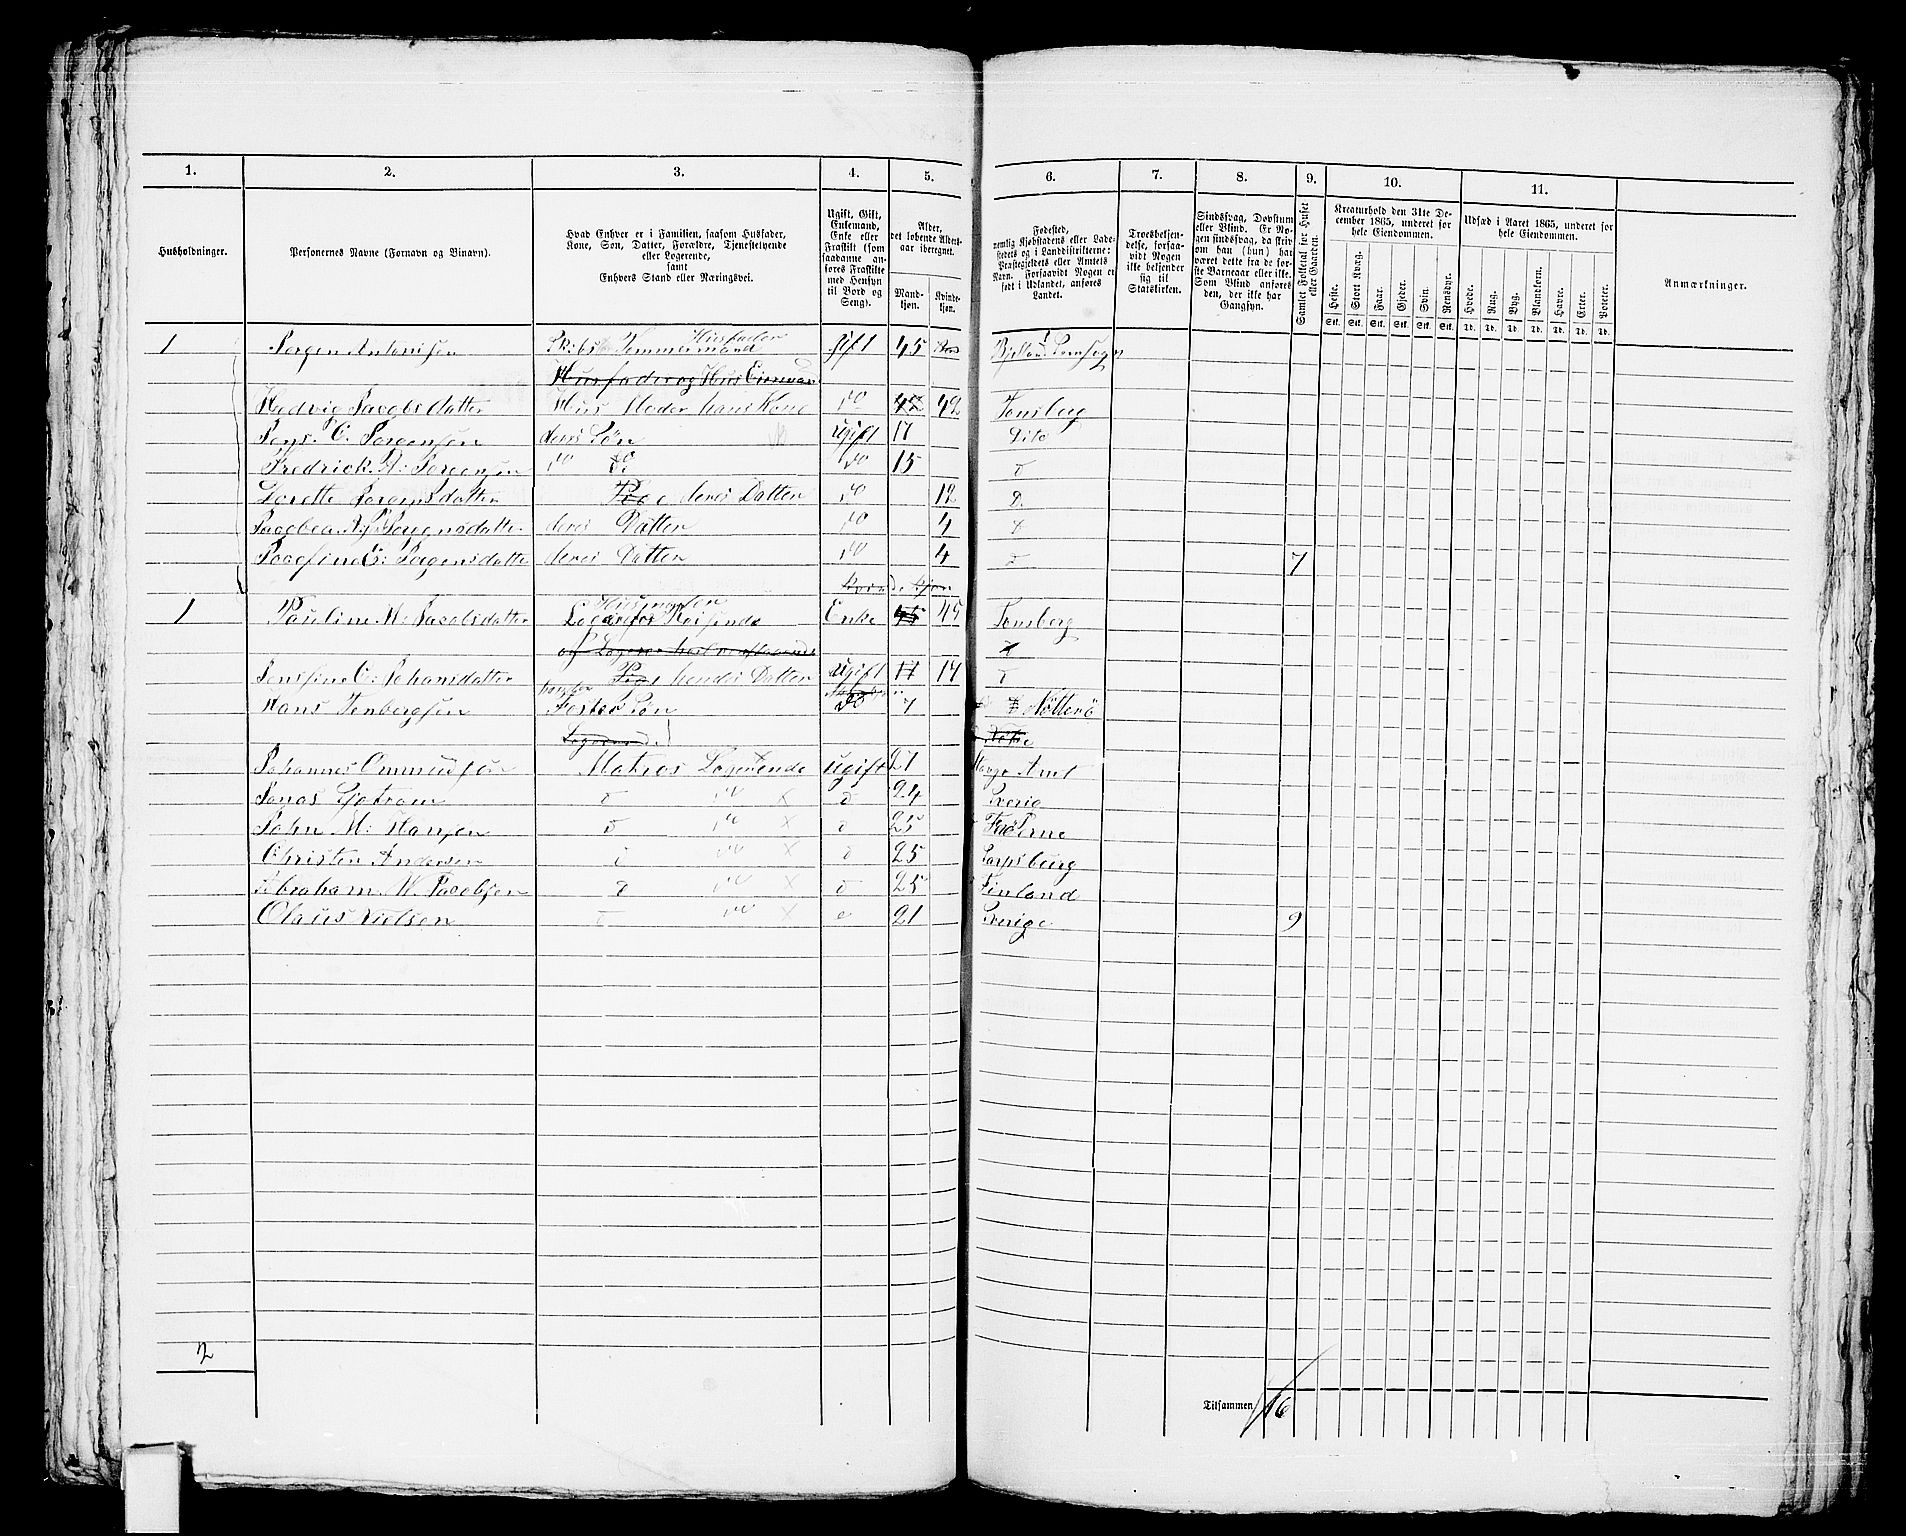 1. 2. 3. 4. 5. 6. 7. 8. 9. 10. 11.
Husholdninger.
Personernes Navne (Fornavn og Binavn).
Hvad Enhver er i Familien, saasom Husfader,
Kone, Søn, Datter, Forældre, Tjenestetyende
eller Logerende,
samt
Enhvers Stand eller Næringsvei.
Ugift, Gift,
Enkemand,
Enke eller
Fraskilt (som
saadanne an-
føres Fraskilte
med Hensyn
til Bord og
Seng).
Alder,
det løbende Alders-
aar iberegnet.
Mand-
kjøn.
Kvinde-
kjøn.
Fødested,
nemlig Kjøbstadens eller Lade-
stedets og i Landdistrikterne:
Præstegjeldets eller Amtets
Navn. Forsaavidt Nogen er
født i Udlandet, anføres
Landet.
Troesbekjen-
delse, forsaa-
vidt Nogen
ikke bekjender
sig til
Statskirken.
Sindssvag, Døvstum
eller Blind. Er No-
gen sindssvag, da skriv
om han (hun) har
været dette fra de før-
ste Barneaar eller ikke.
Som Blind anføres
den, der ikke har
Gangsyn.
Samlet Folketal for Huset
eller Gaarden.
Kreaturhold den 31te De-
cember 1865, underet for
hele Eiendommen.
Heste. Stort Kvæg. Faar. Gjeder. Svin. Rensdyr.
Stk. Stk. Stk. Stk. Stk. Stk.
Udsæd i Aaret 1865, underet for
hele Eiendommen.
Hvede. Rug. Byg. Blandkorn. Havre. Erter. Poteter.
Td. Td. Td. Td. Td. Td. Td.
Anmærkninger.
1 Jørgen Antonisen Skibs Temmermand Husfader gift 45
Husfader og Hus
Hedvig Jacobs datter Hus Moder hans Kone do 42 42 Tønsberg
Jens. C. Jørgensen deres Søn Ugift 17 Dito
Fredrick. A: Jørgensen do do do 15 d
Lorette Jørgensdatter deres Datter do 12 D.
Jacobea. Jørgensdatter deres Datter do 4 d
Josefine C: Jørgensdatter deres Datter do 4 d 7
Kvinde kjøn
1 Pauline M: Jacobsdatter Husmoder Enke 45 45 Tønsberg
og
Jensine C: Johansdatter hendes Datter Ugift 17 17 d
Hans Tenbergsen Foster Søn do 7 Nøtterø
Logerende
Johannes Ommundsen Matros Logerende Ugift 21 Amt
Jonas d do x d 24 Sverig
John M: Hansen d do x d 25
Christen Andersen d do x d 25 Sarpsborg
Abraham. M. Jacobsen d do x d 25 Finland
Olaus Nielsen d do x 21 Sverige 9
2
Tilsammen 16